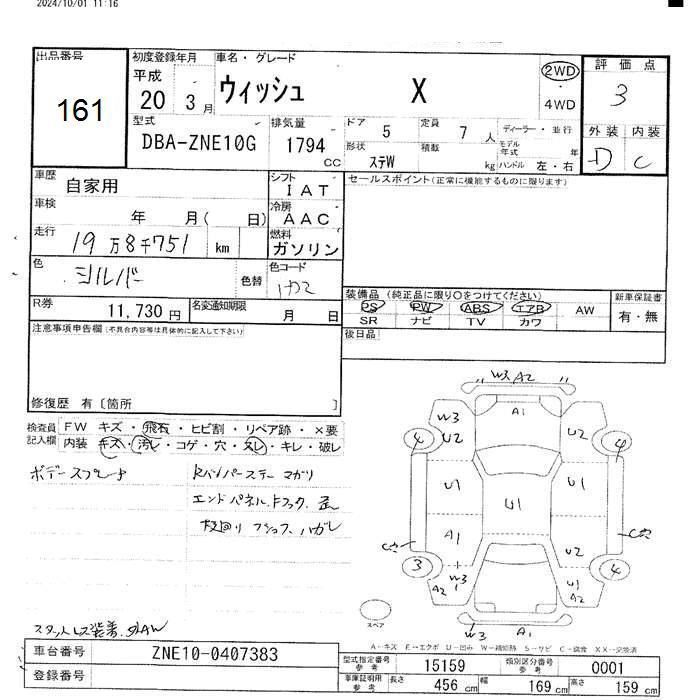 2024/10/01 11:16
出品番号 初度登録年月 車名・グレード 2WD 評価点
161 平成 20 3月 ウィッシュ X 4WD 3
型式 排気量 ドア 5 定員 7人 ディーラー・並行 外装 内装
DBA-ZNE10G 1794 CC 形状 ステW 積載 kg モデル年式 年 ハンドル 左・右 D C
車歴 自家用 シフト IAT セールスポイント(正常に機能するものに限ります)
車検 年 月( 日) 冷房 AAC
走行 19万8千751 km 燃料 ガソリン
色 シルバー 色替 色コード
R券 11,730円 名変通知期限 月 日
装備品(純正品に限り○をつけてください) 新車保証書
PS PW ABS エアB AW 有・無
SR ナビ TV カワ
注意事項申告欄(不具合内容等は具体的に記入して下さい) 後日品
修復歴 有〔箇所 〕
検査員記入欄 FW キズ・飛石・ヒビ割・リペア跡・×要
内装 キズ・汚レ・コゲ・穴・スレ・キレ・破レ
W3 A2
A1
W3 U2 U2
4 4
U1 U1
U1
A1 U2
3 4
W3 A2 U1 A2
W3 A1
スペア
スタットレス装着
A-キズ E-エクボ U-凹み W-補修跡 S-サビ C-腐食 XX-交換済
車台番号 ZNE10-0407383
登録番号
型式指定番号 参考 15159 類別区分番号 参考 0001
車庫証明用 参考 長さ 456cm 幅 169cm 高さ 159cm